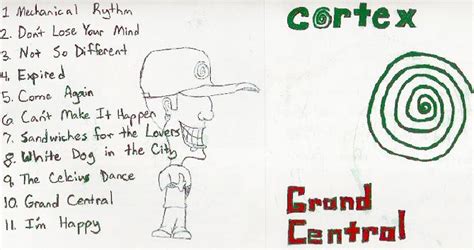 1 Mechanical Rhythm
2. Don't Lose Your Mind
3. Not So Different
4. Expired
5. Come Again
6. Can't Make It Happen
7. Sandwiches for the Lovers
8. White Dog in the City
9. The Celcius Dance
10. Grand Central
11. I'm Happy
cortex
Grand
Central